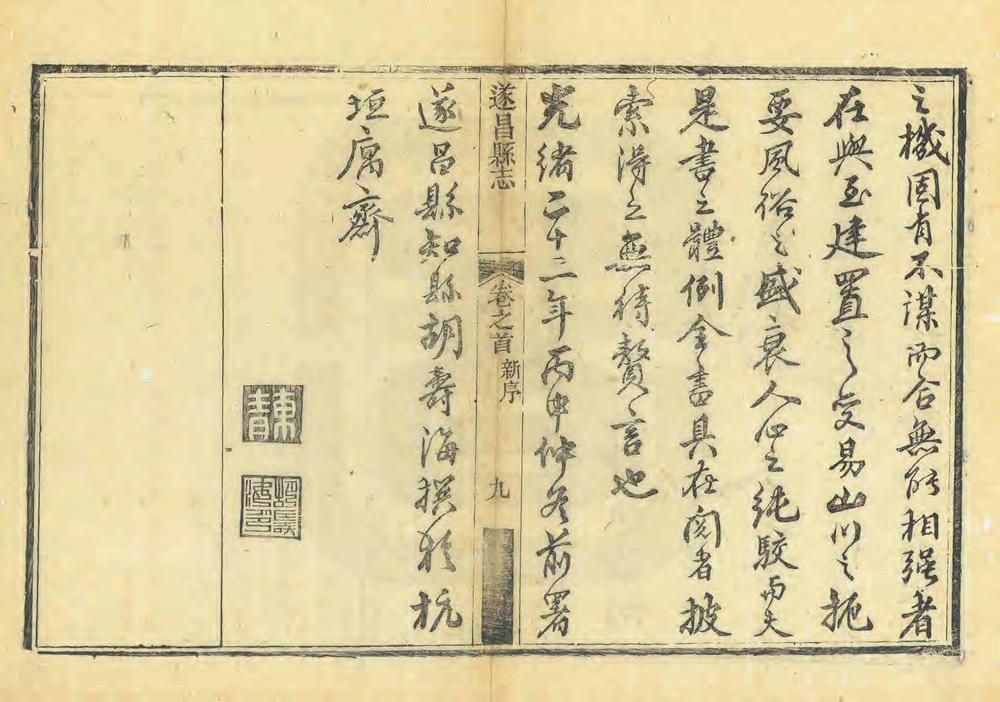 之機固有不謀而合無能相强者
在與至建置之變易山川之扼
要風俗之盛衰人心之純駁而夫
是書之體例全書具在閱者披
索得之無待贅言也
光緒二十二年丙申仲冬前署
遂昌縣志
卷之首
新序
九
遂昌縣知縣胡壽海撰於杭
垣寓齋